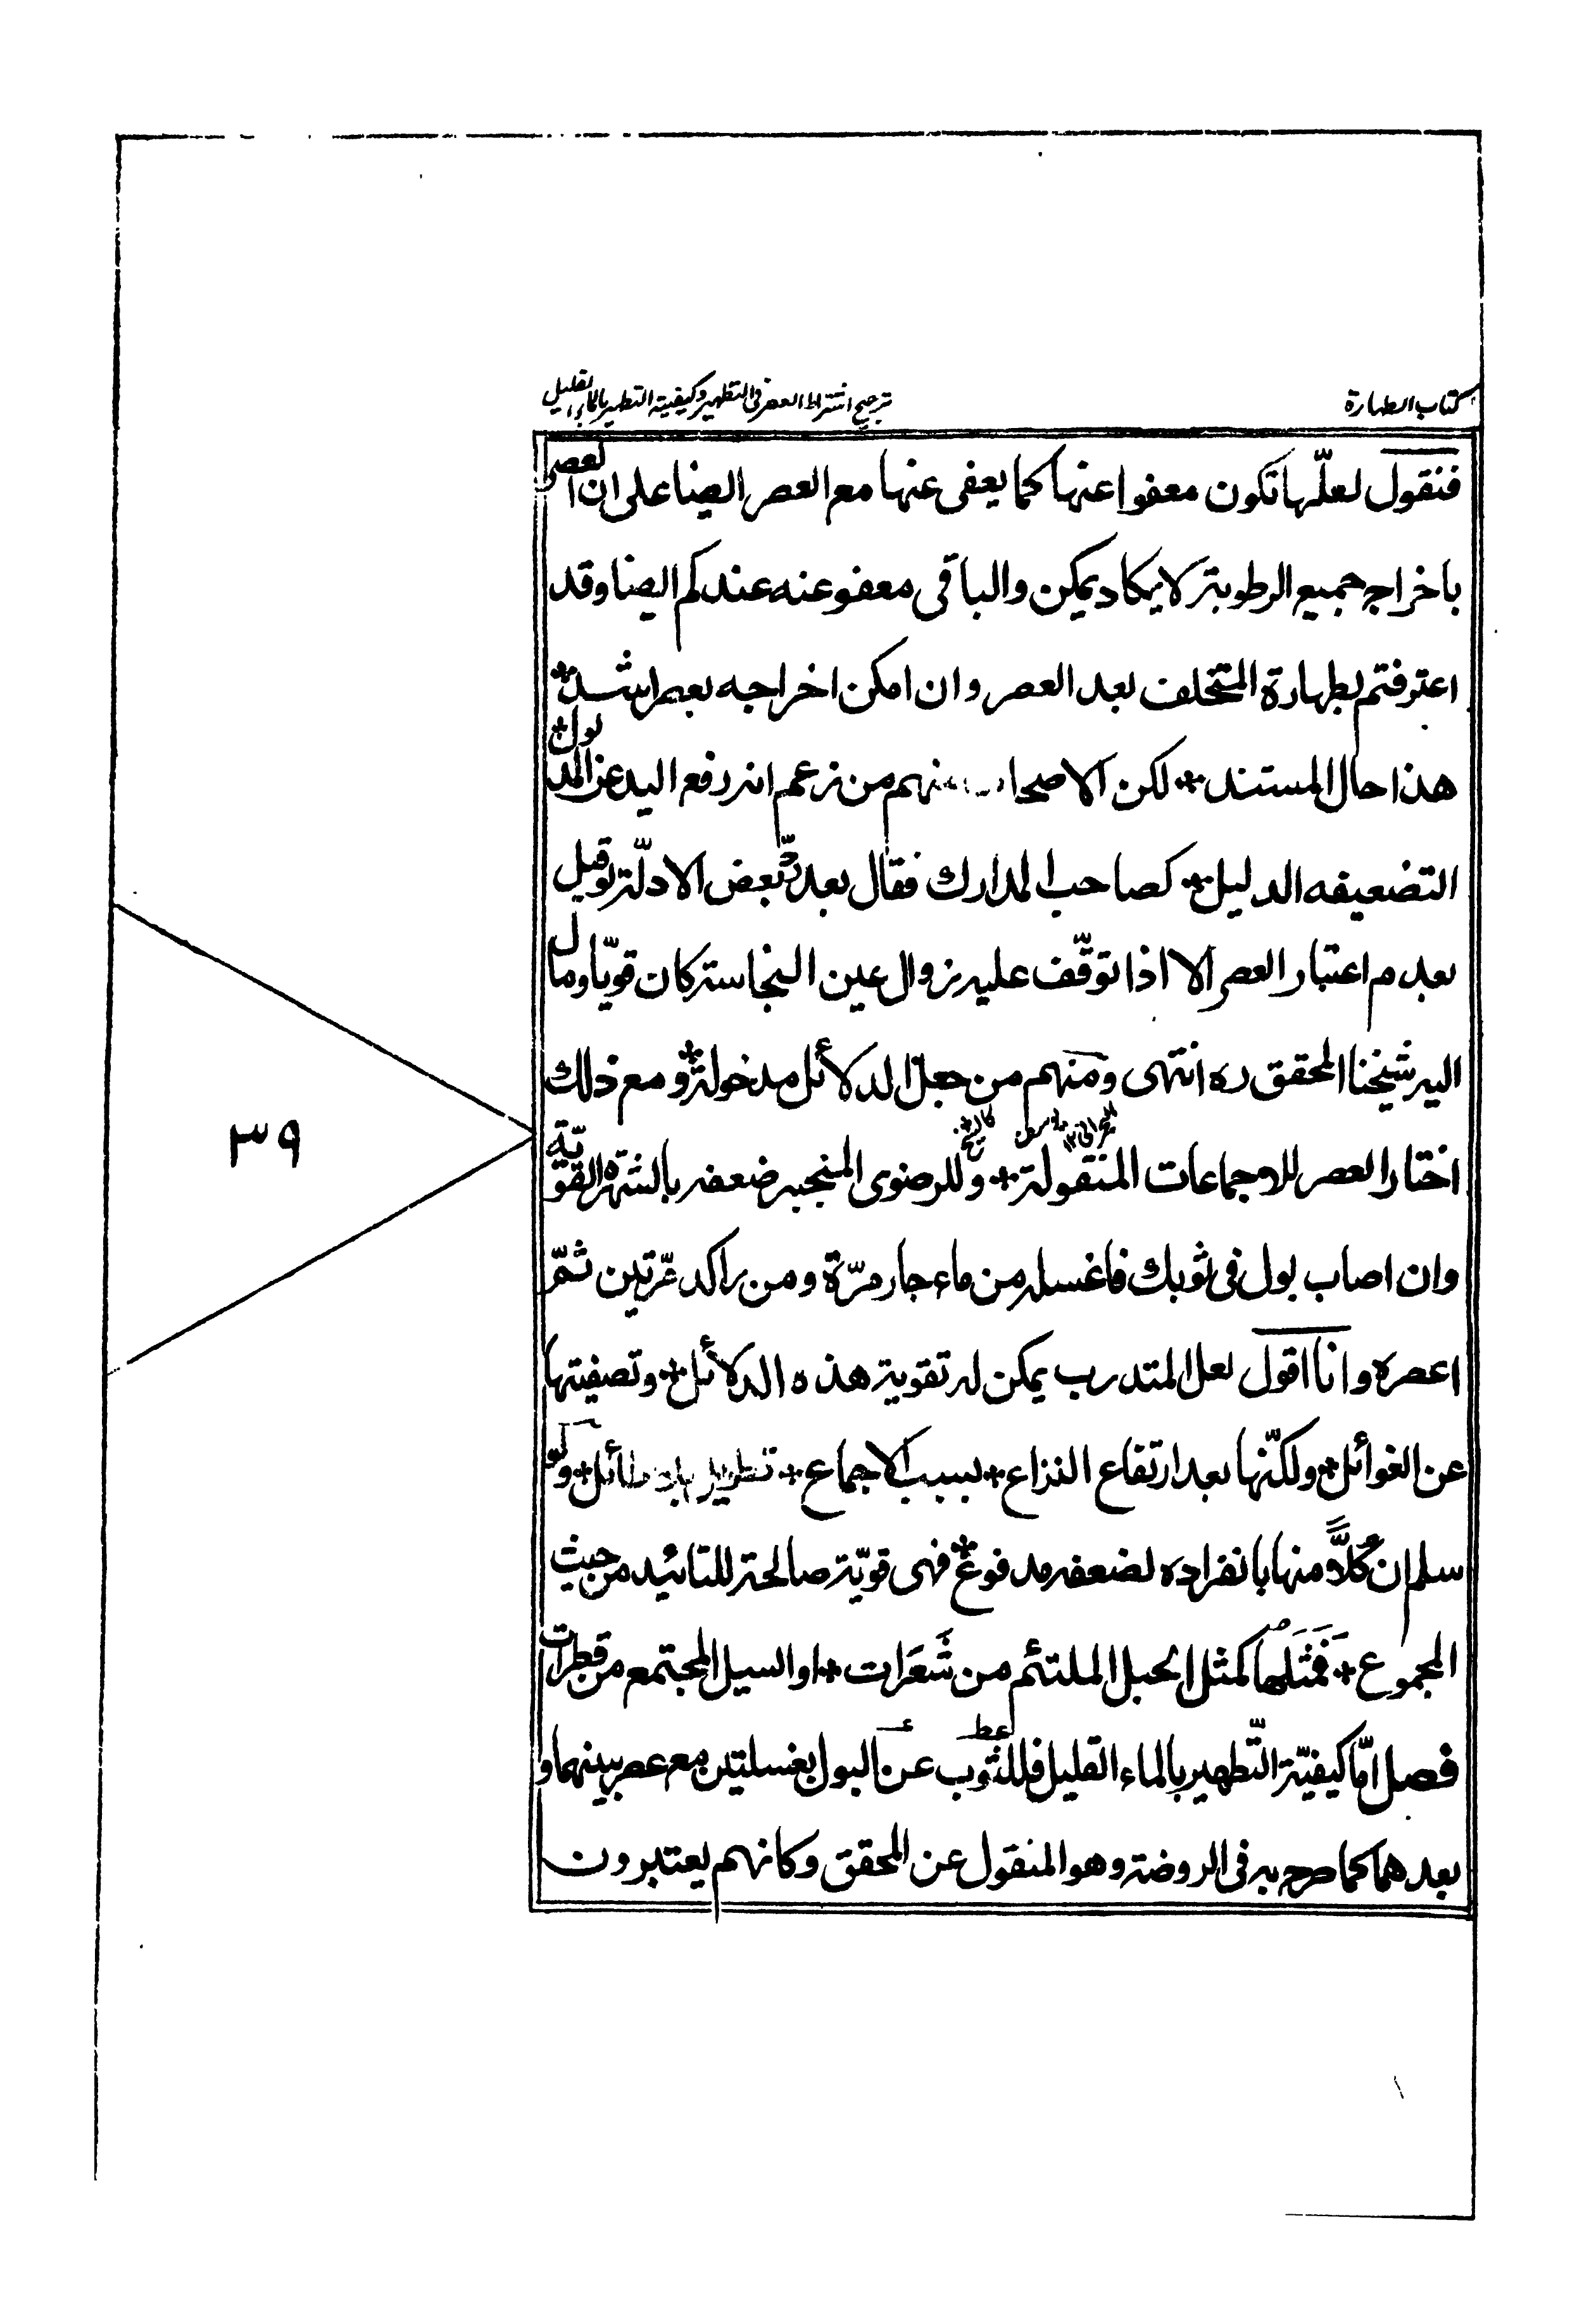 كتاب الطهارة
ترجيح اشتراط العصر فى التطهير وكيفية التطهير بالماء القليل
فنقول لعلّها تكون معفوا عنها كما يعفى عنها مع العصر ايضا على ان العصر
باخراج جميع الرطوبة لا يكاد يمكن والباقى معفو عنه عندكم ايضا وقد
اعترفتم بطهارة المتخلف بعد العصر وان امكن اخراجه بعصر اشد
هذا حال المستند * لكن الاصحاب منهم من زعم انه رفع اليد عن المدلول
لتضعيفه الدليل * كصاحب المدارك فقال بعد ردّ بعض الادلّة لو قيل
بعدم اعتبار العصر الا اذا توقّف عليه زوال عين النجاسة كان قويّا ومال
اليه شيخنا المحقق ره انتهى ومنهم من جعل الدلائل مدخولة * ومع ذلك
اختار العصر للاجماعات المنقولة * وللرضوى المنجبر ضعفه بالشهرة القويّة
وان اصاب بول فى ثوبك فاغسله من ماء جار مرّة ومن راكد مرّتين ثمّ
اعصره وانا اقول لعل المتدرب يمكن له تقوية هذه الدلائل * وتصفيتها
عن الغوائل * ولكنّها بعد ارتفاع النزاع * بسبب الاجماع * تطويل بلا طائل * ولو
سلم ان كُلًّا منها بانفراده لضعفه مدفوع * فهى قويّة صالحة للتائيد من حيث
المجموع * فَمَثَلُها كمثل الحبل الملتئم من شَعَرات * او السيل المجتمع من قطرات
فصل امّا كيفيّة التّطهير بالماء القليل فللثوب عن البول بغسلتين مع عصر بينهما و
بعدهما كما صرح به فى الروضة وهو المنقول عن المحقق وكانهم يعتبرون
٣٩